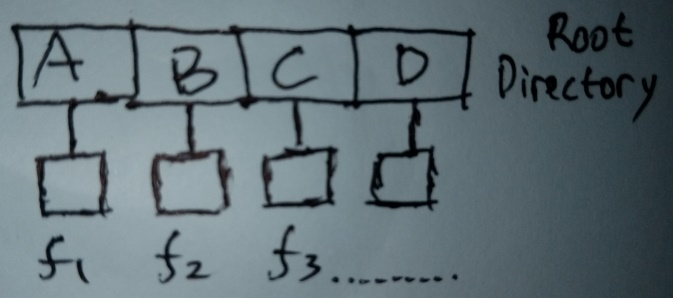 A B C D Root
Directory
f1 f2 f3.........